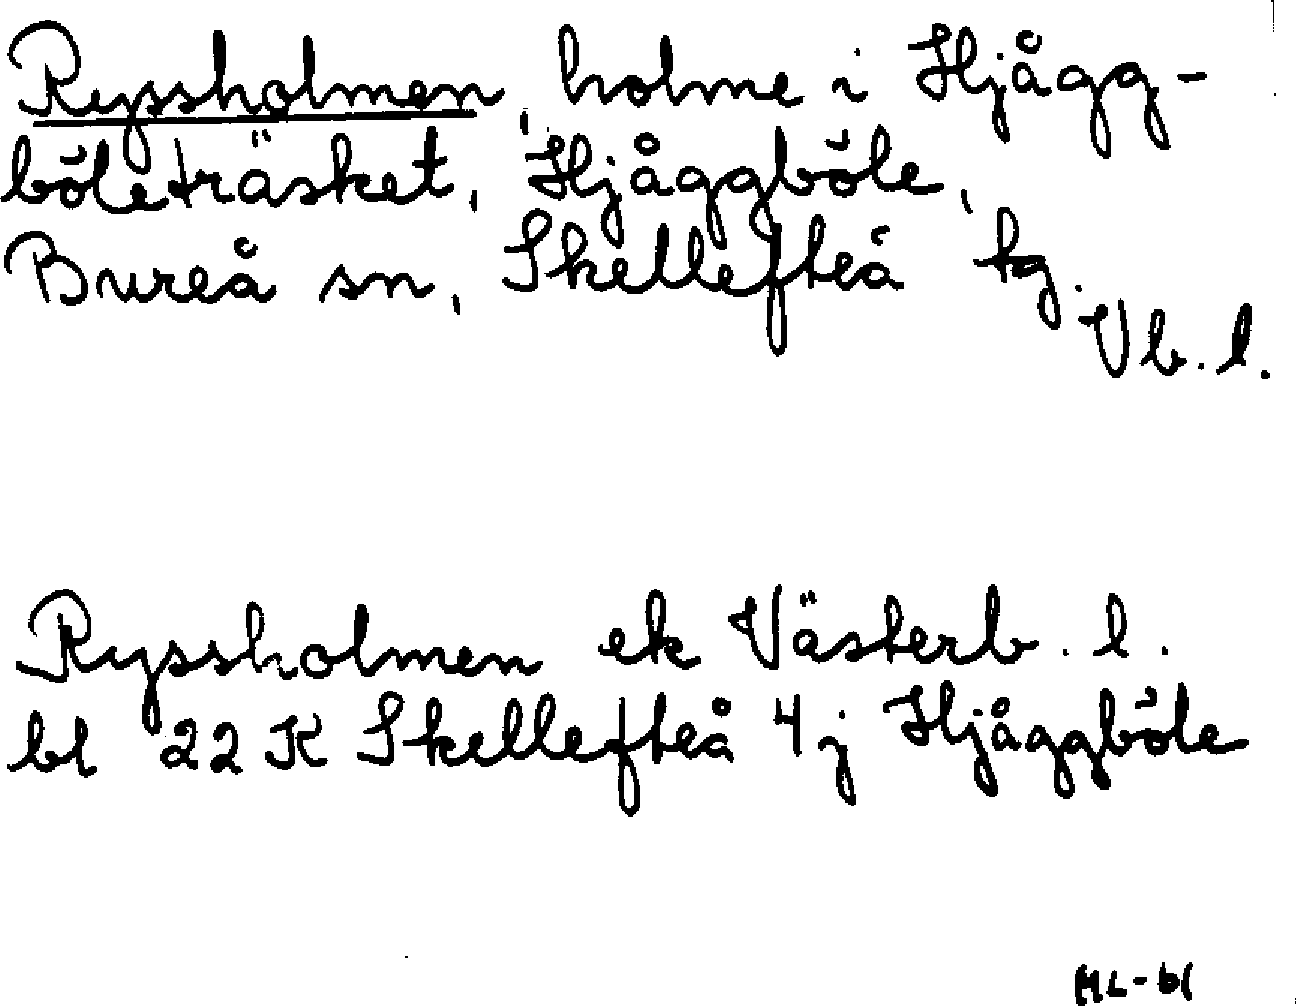 Ryssholmen, holme i Hjågg-
böleträsket, Hjåggböle,
Bureå sn, Skellefteå tg.
Vb. l.
Ryssholmen ek Västerb. l.
bl 22 K Skellefteå 4 j Hjåggböle
ML-61